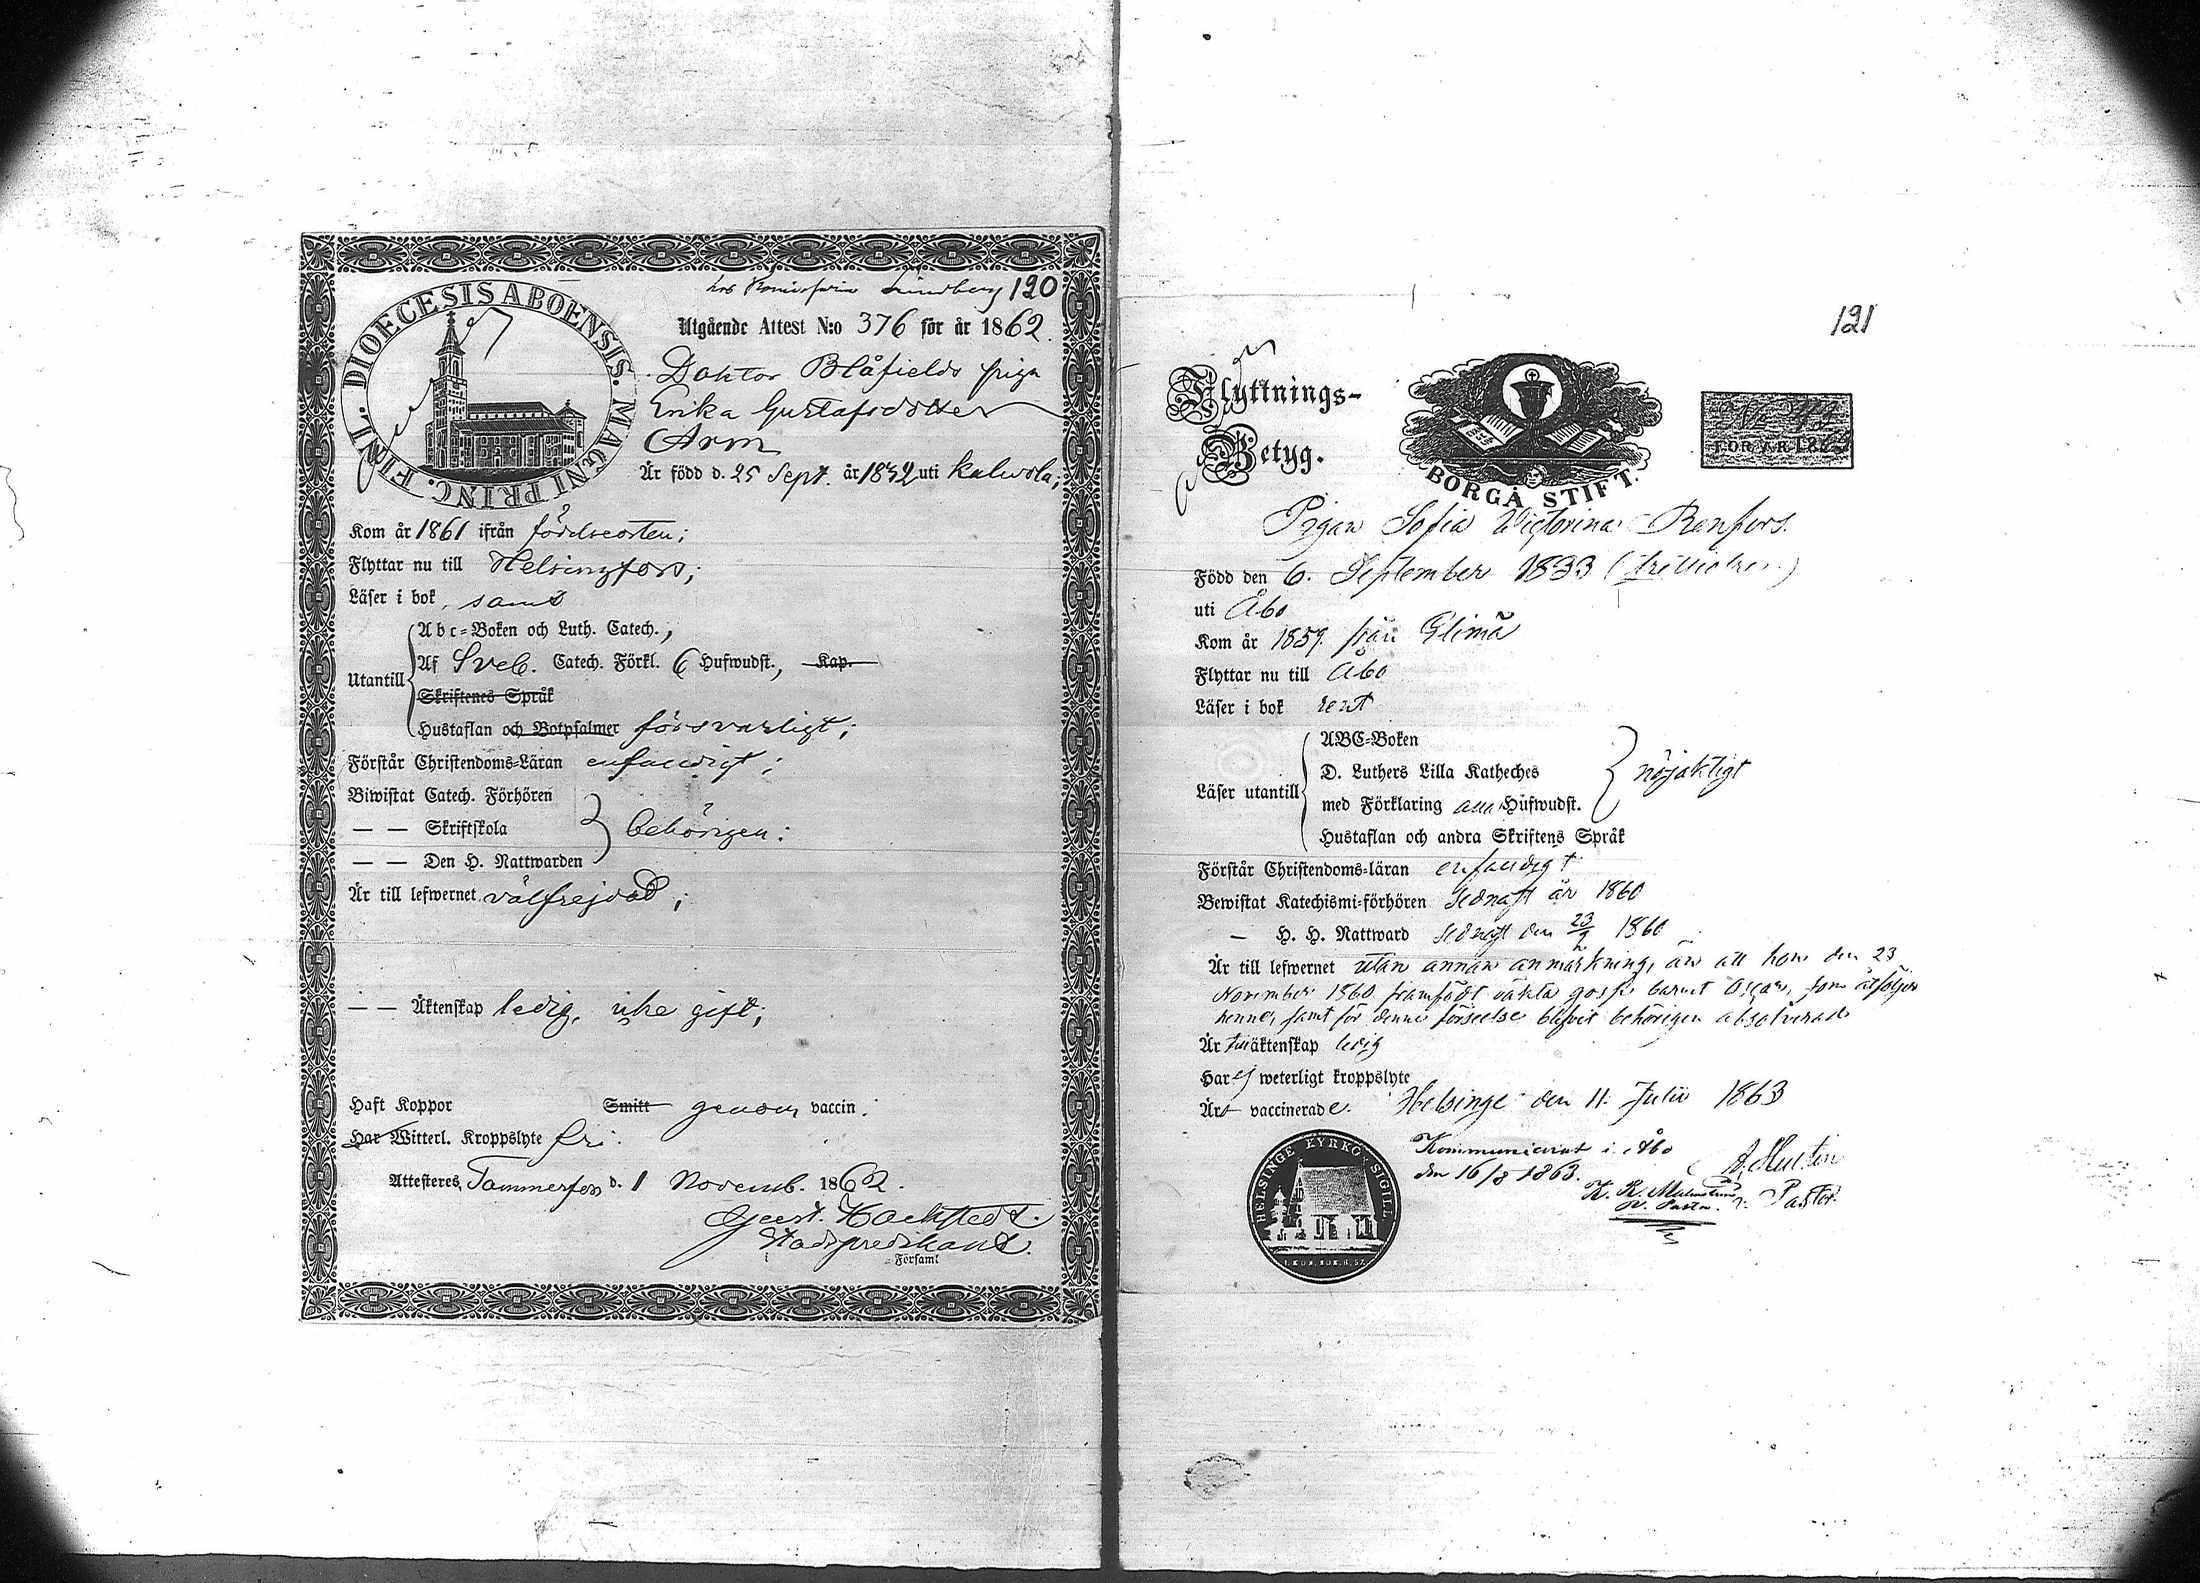 120
Lundberg
DIOECESIS ABOENSIS. MAGNI PRINC. FINL.
Utgående Attest N:o 376 för år 1862.
Doktor Blåfields piga
Erika Gustafsdotter
Arm
Är född d. 25 Sept. år 1832 uti Kalvola;
Kom år 1861 ifrån födelseorten;
Flyttar nu till Helsingfors;
Läser i bok, samt
Utantill
Abc-Boken och Luth. Catech.,
Af Sveb. Catech. Förkl. 6 Hufwudst., Kap.
Skriftenes Språk
Hustaflan och Botpsalmer försvarligt;
Förstår Christendoms-Läran enfaldigt;
Biwistat Catech. Förhören
— — Skriftskola behörigen:
— — Den H. Nattwarden
Är till lefwernet välfrejdad;
— — Äktenskap ledig, icke gift;
Haft Koppor Smitt genom vaccin.
Har Witterl. Kroppslyte fri.
Attesteres, Tammerfors d. 1 Novemb. 1862.
Gust. Hockstedt.
Stadspredikant.
Församl
121
Flyttnings-
Betyg.
BORGÅ STIFT.
No 42
FÖR ÅR 1863
Pigan Sofia Victorina Renfors.
Född den 6. September 1833 (trettiotre.)
uti Åbo
Kom år 1859. från Elimä
Flyttar nu till Åbo
Läser i bok rent
Läser utantill
ABC-Boken
D. Luthers Lilla Katheches nöjaktigt
med Förklaring alla Hufwudst.
Hustaflan och andra Skriftens Språk
Förstår Christendoms-läran enfaldigt
Bewistat Katechismi-förhören sednast år 1860
— H. H. Nattward sednast den 23/9 1860
Är till lefwernet utan annan anmärkning, än att hon den 23
November 1860 framfödt oäkta gosse barnet Oscar, som åtföljer
henne, samt för denna förseelse blifvit behörigen absolverad
Är till äktenskap ledig
Har ej weterligt kroppslyte
Är vaccinerad. Helsinge den 11. Julii 1863
HELSINGE KYRKO SIGILL
Kommunicerat i Åbo
den 16/8 1863.
K. R. Malmström
V. Pastor.
Pastor.